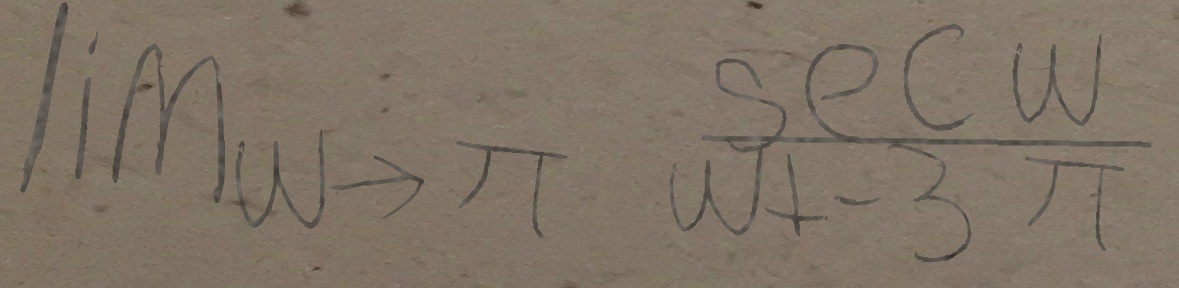 \lim_{w \to \pi} \frac{\sec w}{w + -3 \pi}